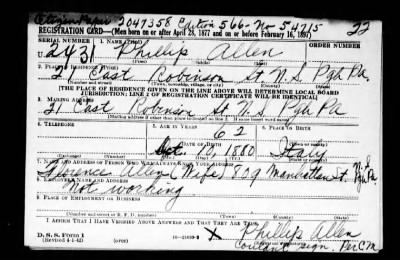 Citizen Paper 2047358 Edition 566-No 54715
22
REGISTRATION CARD—(Men born on or after April 28, 1877 and on or before February 16, 1897)
SERIAL NUMBER
1. NAME (Print)
ORDER NUMBER
U 2431 Phillip Allen
(First) (Middle) (Last)
2. PLACE OF RESIDENCE (Print)
21 East Robinson St N.S. Pgh Pa.
(Number and street) (Town, township, village, or city) (County) (State)
[THE PLACE OF RESIDENCE GIVEN ON THE LINE ABOVE WILL DETERMINE LOCAL BOARD
JURISDICTION; LINE 2 OF REGISTRATION CERTIFICATE WILL BE IDENTICAL]
3. MAILING ADDRESS
21 East Robinson St N.S. Pgh Pa
[Mailing address if other than place indicated on line 2. If same insert word same]
4. TELEPHONE
5. AGE IN YEARS
62
6. PLACE OF BIRTH
DATE OF BIRTH
10, 1880
Italy
(Exchange) (Number)
(Mo.) (Day) (Yr.)
(Town or county)
(State or country)
7. NAME AND ADDRESS OF PERSON WHO WILL ALWAYS KNOW YOUR ADDRESS
Florence Allen (Wife) 809 Manhattan St. Pa.
8. EMPLOYER'S NAME AND ADDRESS
Not working
9. PLACE OF EMPLOYMENT OR BUSINESS
(Number and street or R. F. D. number) (Town) (County) (State)
I AFFIRM THAT I HAVE VERIFIED ABOVE ANSWERS AND THAT THEY ARE TRUE.
D. S. S. Form 1
(Revised 4-1-42) (over) 16—21630-2
X Phillip Allen
sign. Per C.M.